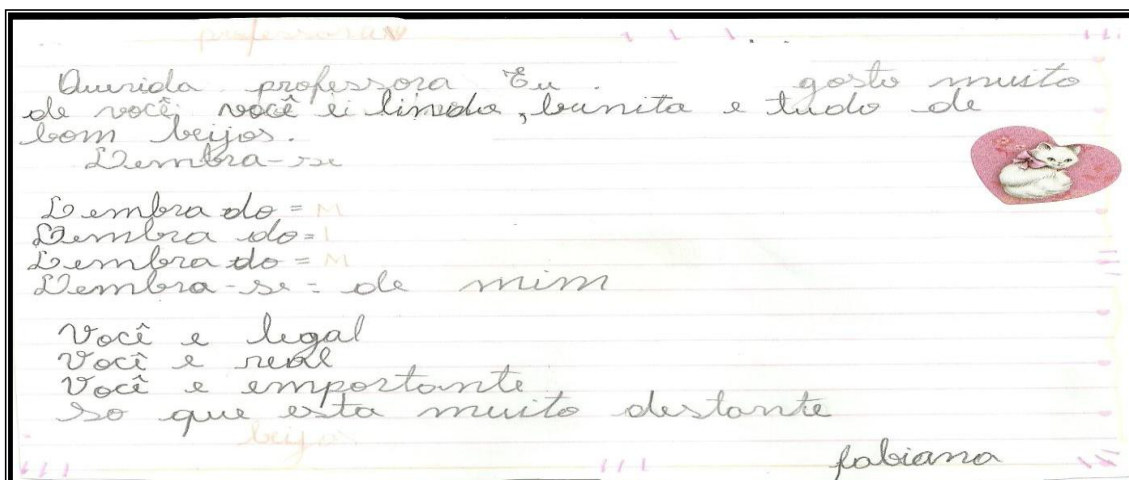 professora
Querida professora Eu gosto muito
de você, você é linda, bunita e tudo de
bom beijos.
Lembra-se
Lembra do = M
Lembra do = I
Lembra do = M
Lembra-se = de mim
Você e legal
Você e real
Você e emportante
so que esta muito destante
beijos
fabiana